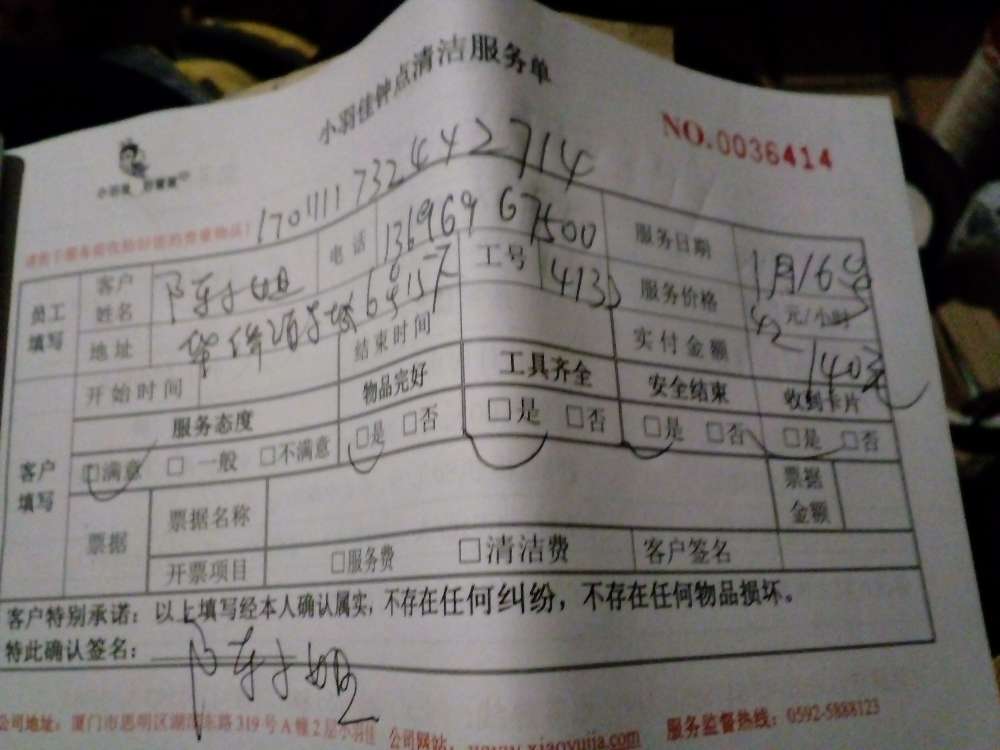 小羽佳钟点清洁服务单
NO.0036414
小羽佳
170111732442714
员工填写 客户姓名 陈小姐 电话 13696967500 服务日期 1月16号
地址 工号 4133 服务价格 42 元/小时
开始时间 结束时间 实付金额 140元
服务态度 物品完好 工具齐全 安全结束 收到卡片
客户填写 □满意 □一般 □不满意 □是 □否 □是 □否 □是 □否 □是 □否
票据 票据名称 票据金额
开票项目 □服务费 □清洁费 客户签名
客户特别承诺：以上填写经本人确认属实，不存在任何纠纷，不存在任何物品损坏。
特此确认签名： 陈小姐
公司地址：厦门市思明区湖滨东路319号A幢2层小羽佳 公司网站：www.xiaoyujia.com 服务监督热线：0592-5888123